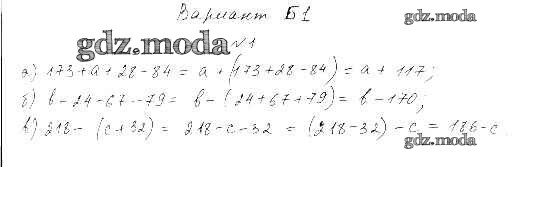 Вариант Б1
gdz.moda
gdz.moda
№1
а) 173+а+28-84 = а+(173+28-84) = а+117;
б) в-24-67-79 = в-(24+67+79) = в-170;
в) 218-(с+32) = 218-с-32 = (218-32)-с = 186-с.
gdz.moda